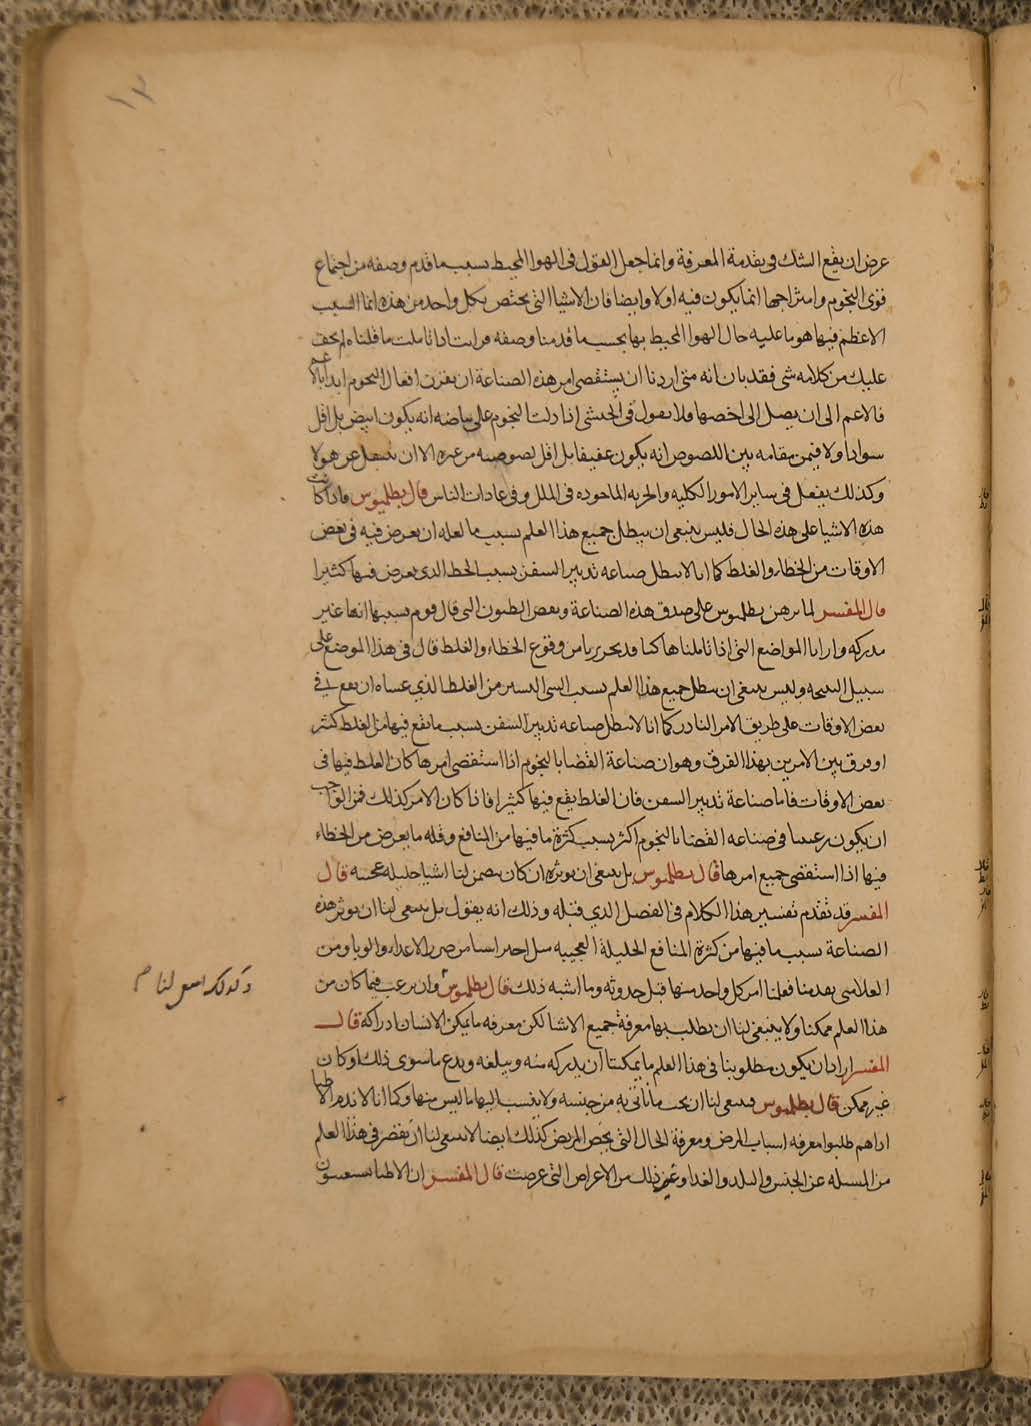 ١٢
عرض ان يقع الشك فى تقدمة المعرفة وانما جعل القول فى الهوا المحيط بسبب ما قدم وصفه من اجتماع
قوى النجوم وامتزاجها انما يكون فيه اولا وايضا فان الاشيا التى يختص بكل واحد من هذه انما السبب
الاعظم فيها هو ما عليه حال الهوا المحيط بها بحسب ما قدمنا وصفه فانت اذا تاملت ما قلناه لم يخف
عليك من كلامه شى فقد بان انه متى اردنا ان يستقصى امر هذه الصناعة ان يقرن افعال النجوم ابدا بالاعم
فالاعم الى ان يصل الى اخصها فلا يقول فى الحبشى اذا دلت النجوم على بياضه انه يكون ابيض بل اقل
سوادا ولا فيمن مقامه بين اللصوص انه يكون عفيفا بل اقل لصوصيه من غيره الا ان عن هولا
وكذلك يفعل فى ساير الامور الكليه والجزيه الماخوذه فى الملل وفى عادات الناس قال بطلميوس فاذا كانت
هذه الاشيا على هذه الحال فليس ينبغى ان يبطل جميع هذا العلم بسبب ما لعله ان يعرض فيه فى بعض
الاوقات من الخطاء والغلط كما انا لا نبطل صناعه تدبير السفن بسبب الخطا الذى يعرض فيها كثيرا
قال المفسر لما برهن بطلميوس على صدق هذه الصناعة ونقض الظنون التى قال قوم بسببها انها غير
مدركه وارانا المواضع التى اذا تاملناها كنا من وقوع الخطاء والغلط قال فى هذا الموضع على
سبيل النتيجه وليس ينبغى ان نبطل جميع هذا العلم بسبب الشى اليسير من الغلط الذى عساه ان يقع فى
بعض الاوقات على طريق الامر النادر كما انا لا نبطل صناعه تدبير السفن بسبب ما يقع فيها من الغلط كثير
او فرق بين الامرين بهذا الفرق وهو ان صناعة القضايا بالنجوم اذا استقصى امرها كان الغلط فيها فى
بعض الاوقات فاما صناعة تدبير السفن فان الغلط يقع فيها كثيرا فاذا كان الامر كذلك فمن الواجب
ان يكون رغبتنا فى صناعه القضايا بالنجوم اكثر بسبب كثرة ما فيها من المنافع وقله ما يعرض من الخطاء
فيها اذا استقصى جميع امرها قال بطلميوس بل ينبغى ان نوثره ان كان يضمن لنا اشيا جليله عجيبه قال
المفسر قد تقدم تفسير هذا الكلام فى الفصل الذى قبله وذلك انه يقول بل ينبغى لنا ان نوثر هذه
الصناعة بسبب ما فيها من كثرة المنافع الجليلة العجيبه مثل من ضرر الاعداء والوبا ومن
الغلا متى تقدمنا فعلمنا امر كل واحد منها قبل حدوثه وما اشبه ذلك قال بطلميوس وان نرغب فيما كان من
هذا العلم ممكنا ولا ينبغى لنا ان نطلب بها معرفة جميع الاشيا لكن معرفه ما يمكن الانسان ادراكه قال
المفسر اراد ان يكون مطلوبنا فى هذا العلم ما يمكننا ان ندركه منه ونبلغه وندع ما سوى ذلك اذ كان
غير ممكن قال بطلميوس فينبغى لنا ان نحب ما تاتى به من جنسه ولا ينسب اليها ما ليس منها وكما انا لا نذم الاطبا
اذا هم طلبوا معرفه اسباب المرض ومعرفة الحال التى يخص المريض كذلك ايضا لا ينبغى لنا ان نقصر فى هذا العلم
من المسله عن الجنس والبلد والغدا وغير ذلك من الاعراض التى عرضت قال المفسر ان الاطبا
وكذلك لنا